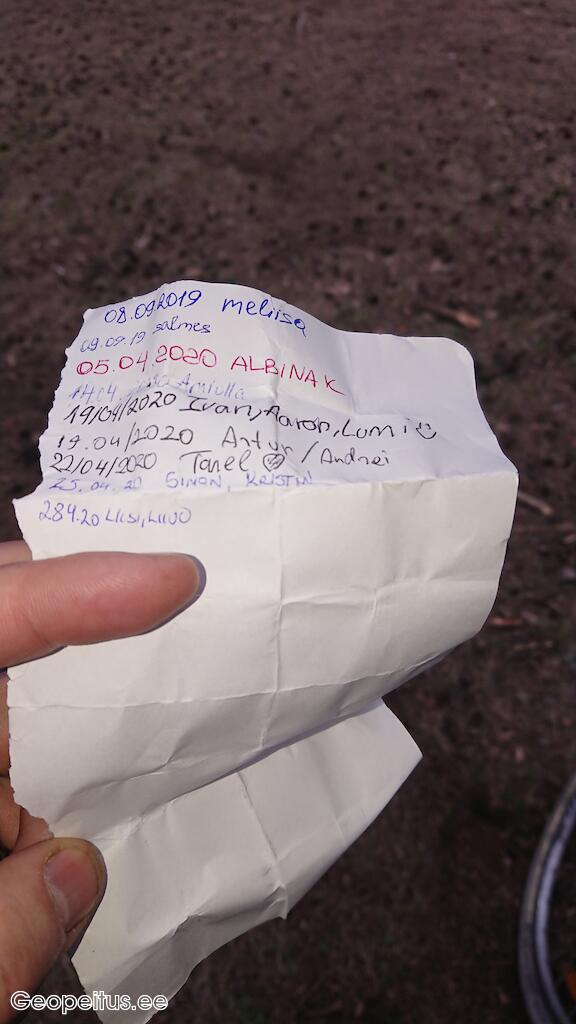 08.09.2019 meliisa
09.09.19 salmes
05.04.2020 ALBINA K
14.04
19/04/2020 Ivan, Aaron, Lumi
19.04/2020 Artur / Andrei
22/04/2020 Tanel
25.04.20 SIMON, KRISTIN
28.4.20 LIISI, LIIVO
Geopeitus.ee